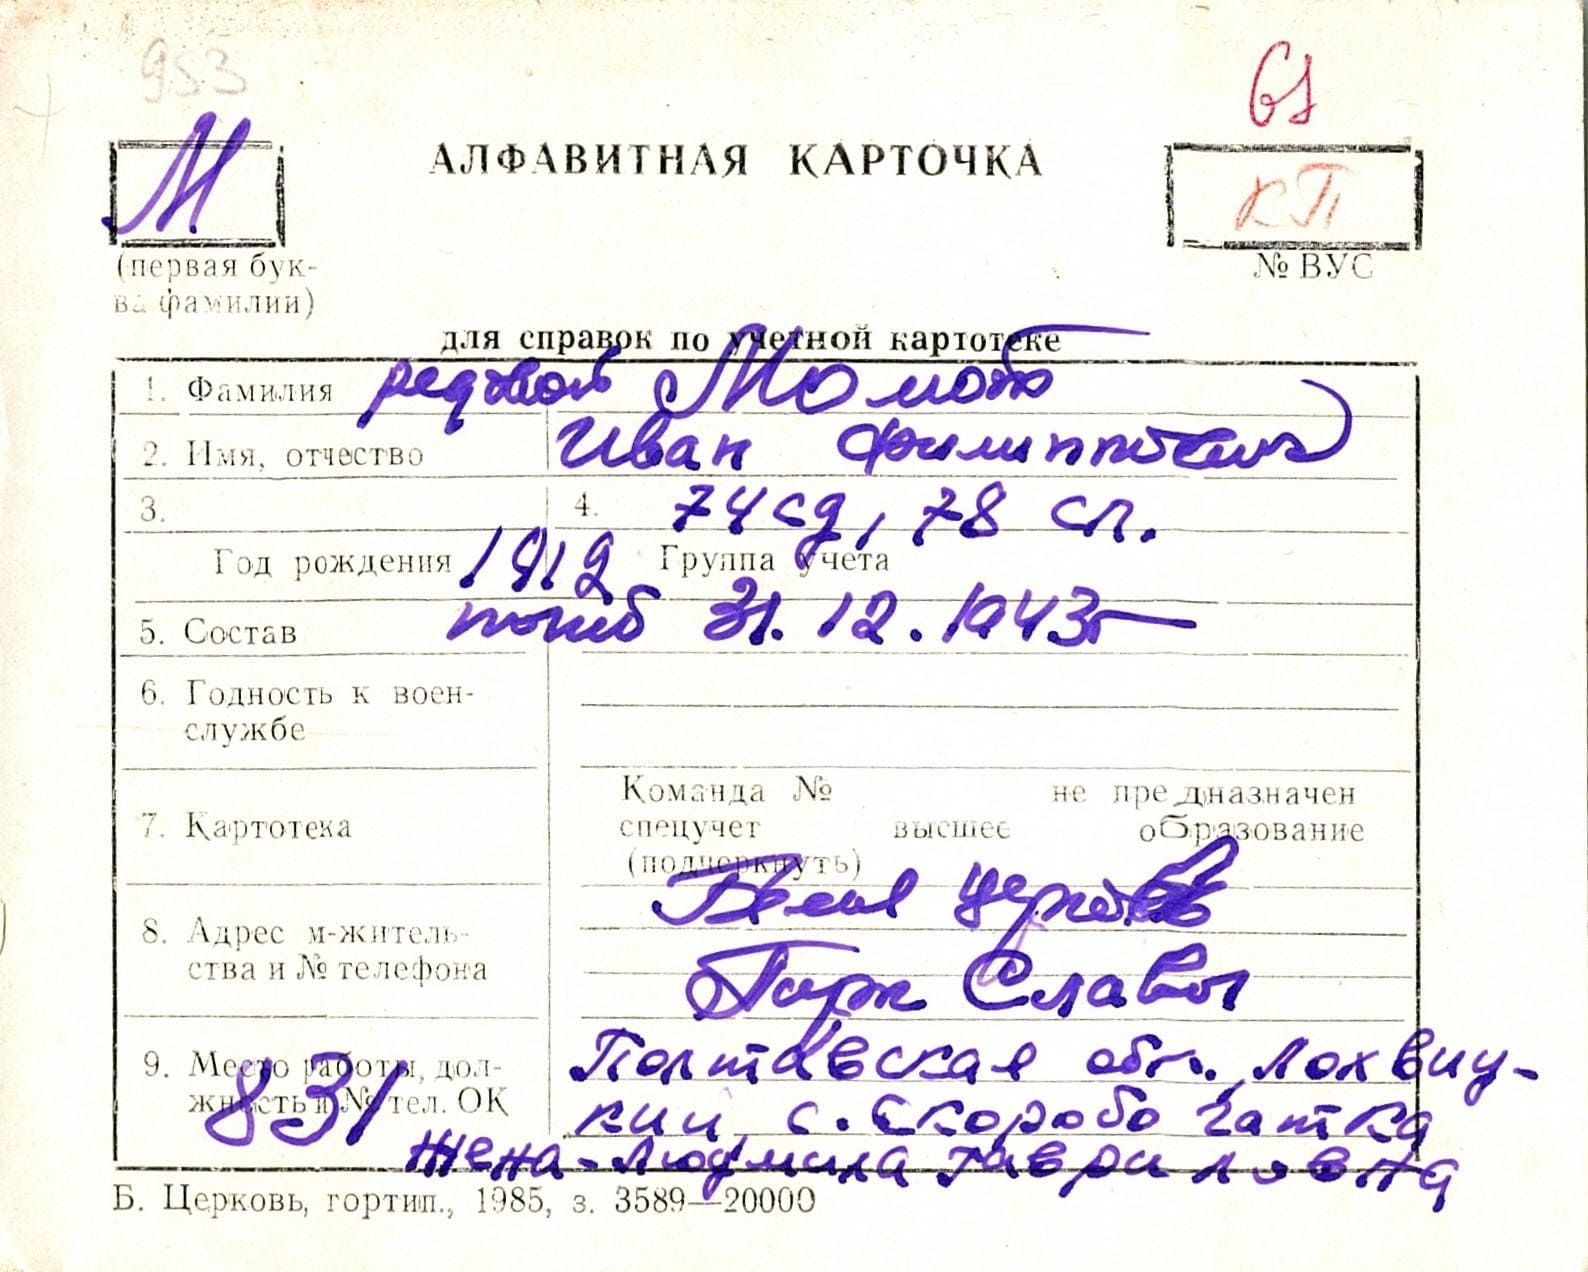 953
61
М
АЛФАВИТНАЯ КАРТОЧКА
КП
(первая бук-
ва фамилии)
№ ВУС
для справок по учетной картотеке
1. Фамилия рядовой Момот
2. Имя, отчество Иван Филиппович
3. 4. 74 сд, 78 сп.
Год рождения 1912 Группа учета
5. Состав погиб 31.12.1943г
6. Годность к воен-
службе
Команда № не предназначен
7. Картотека спецучет высшее образование
(подчеркнуть)
Белая Церковь
8. Адрес м-житель-
ства и № телефона Парк Славы
9. Место работы, дол- Полтавская обл., Лохвиц-
жность и № тел. ОК 831 кий, с. Скоробогатка
жена - Людмила Гавриловна
Б. Церковь, гортип., 1985, з. 3589—20000